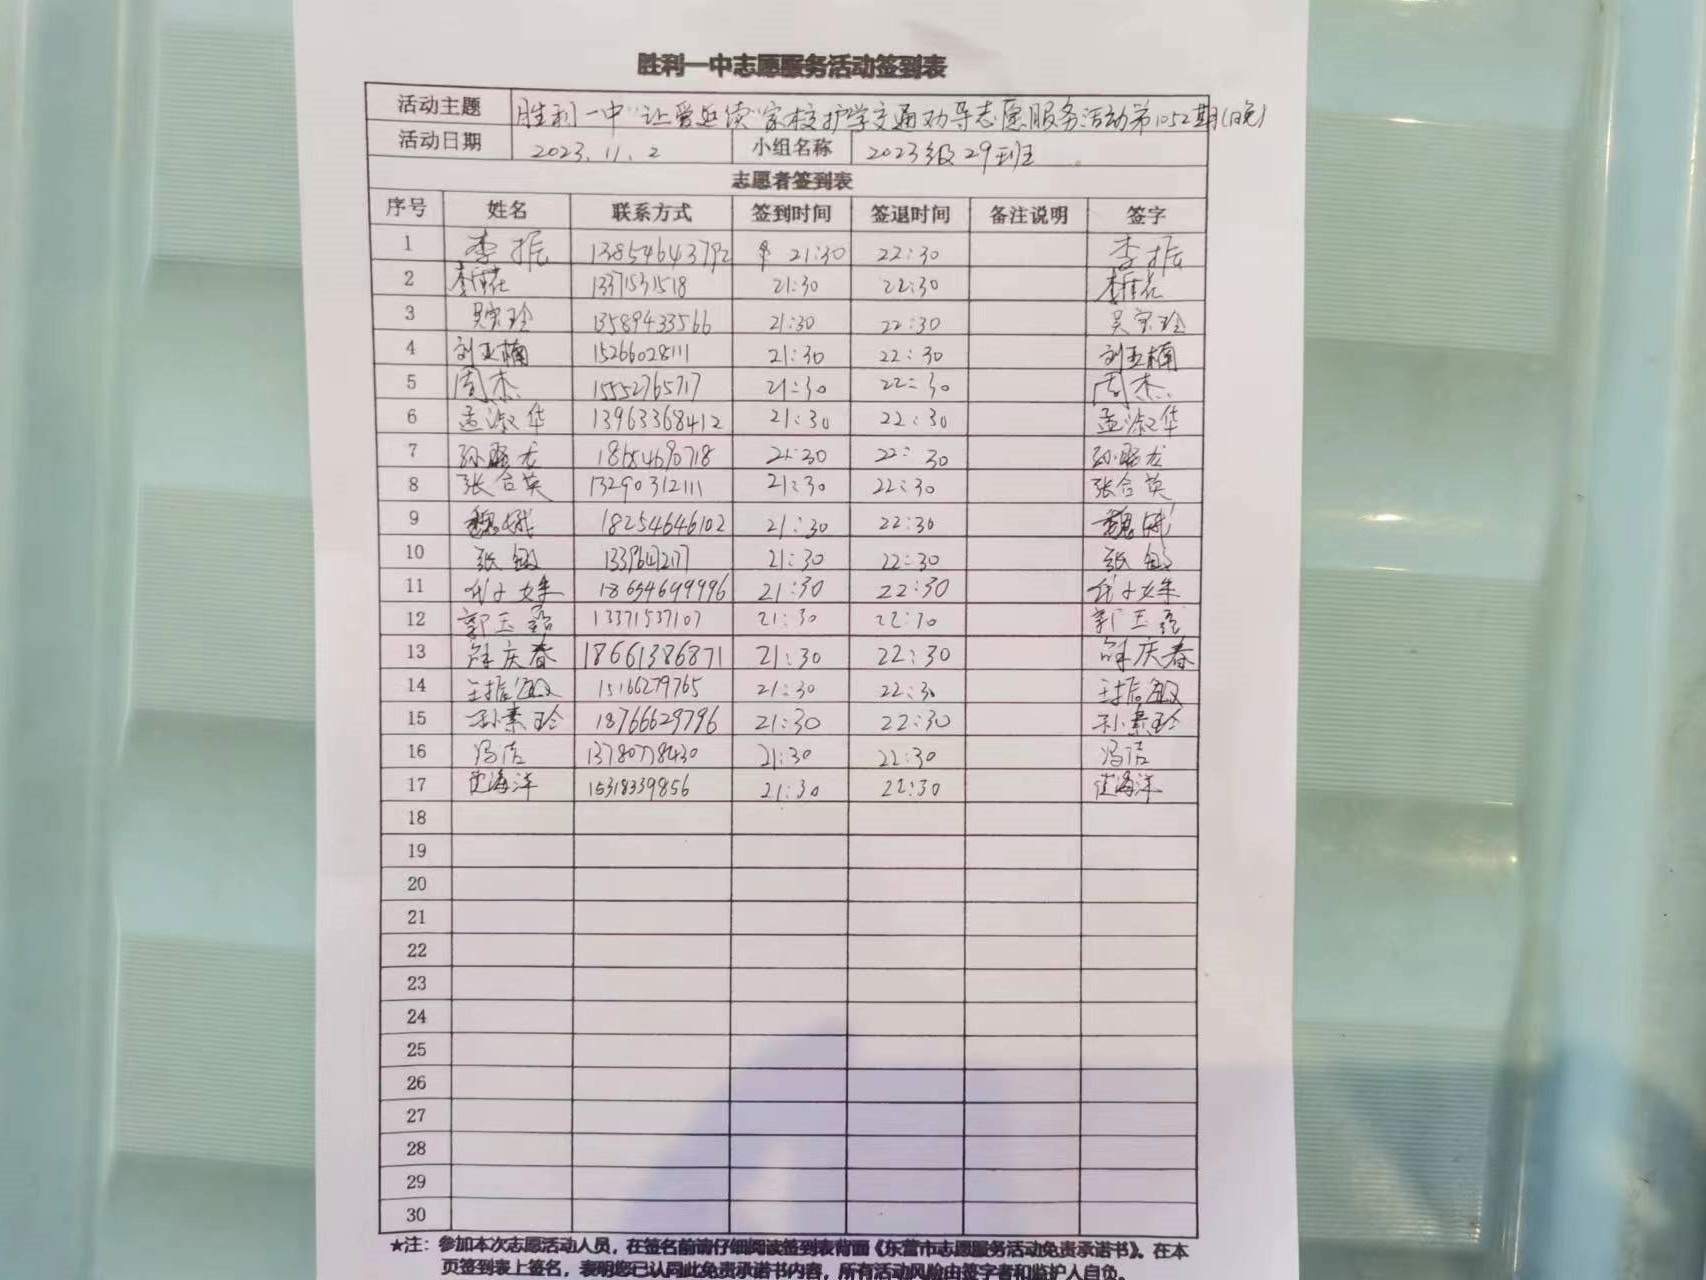 胜利一中志愿服务活动签到表
活动主题 胜利一中"让爱延续"家校护学交通劝导志愿服务活动第1052期(晚)
活动日期 2023.11.2 小组名称 2023级29班
志愿者签到表
序号 姓名 联系方式 签到时间 签退时间 备注说明 签字
1 李振 13854643792 21:30 22:30 李振
2 13371531518 21:30 22:30
3 吴宝玲 13589433566 21:30 22:30 吴宝玲
4 刘亚楠 15266028111 21:30 22:30 刘亚楠
5 周杰 15552765717 21:30 22:30 周杰
6 孟淑华 13963368412 21:30 22:30 孟淑华
7 18654690718 21:30 22:30
8 张合英 13290312111 21:30 22:30 张合英
9 18254646102 21:30 22:30
10 张敏 21:30 22:30 张敏
11 18654699996 21:30 22:30
12 13371537107 21:30 22:30
13 解庆春 18661386871 21:30 22:30 解庆春
14 王振敏 15166279765 21:30 22:30 王振敏
15 孙素玲 18766629796 21:30 22:30 孙素玲
16 冯洁 13780778430 21:30 22:30 冯洁
17 15318339856 21:30 22:30
18
19
20
21
22
23
24
25
26
27
28
29
30
★注：参加本次志愿活动人员，在签名前请仔细阅读签到表背面《东营市志愿服务活动免责承诺书》。在本
页签到表上签名，表明您已认同此免责承诺书内容，所有活动风险由签字者和监护人自负。